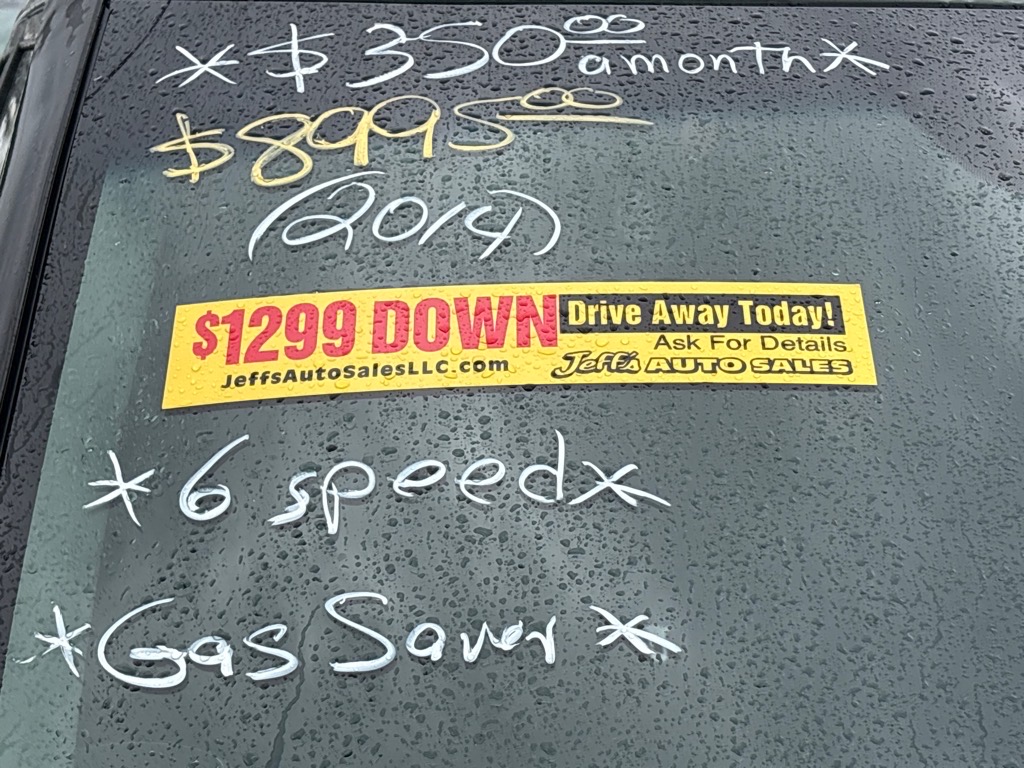 *$350.00 a month*
$8995.00
(2014)
$1299 DOWN Drive Away Today!
Ask For Details
JeffsAutoSalesLLC.com Jeff's AUTO SALES
*6 speed*
*Gas Saver*